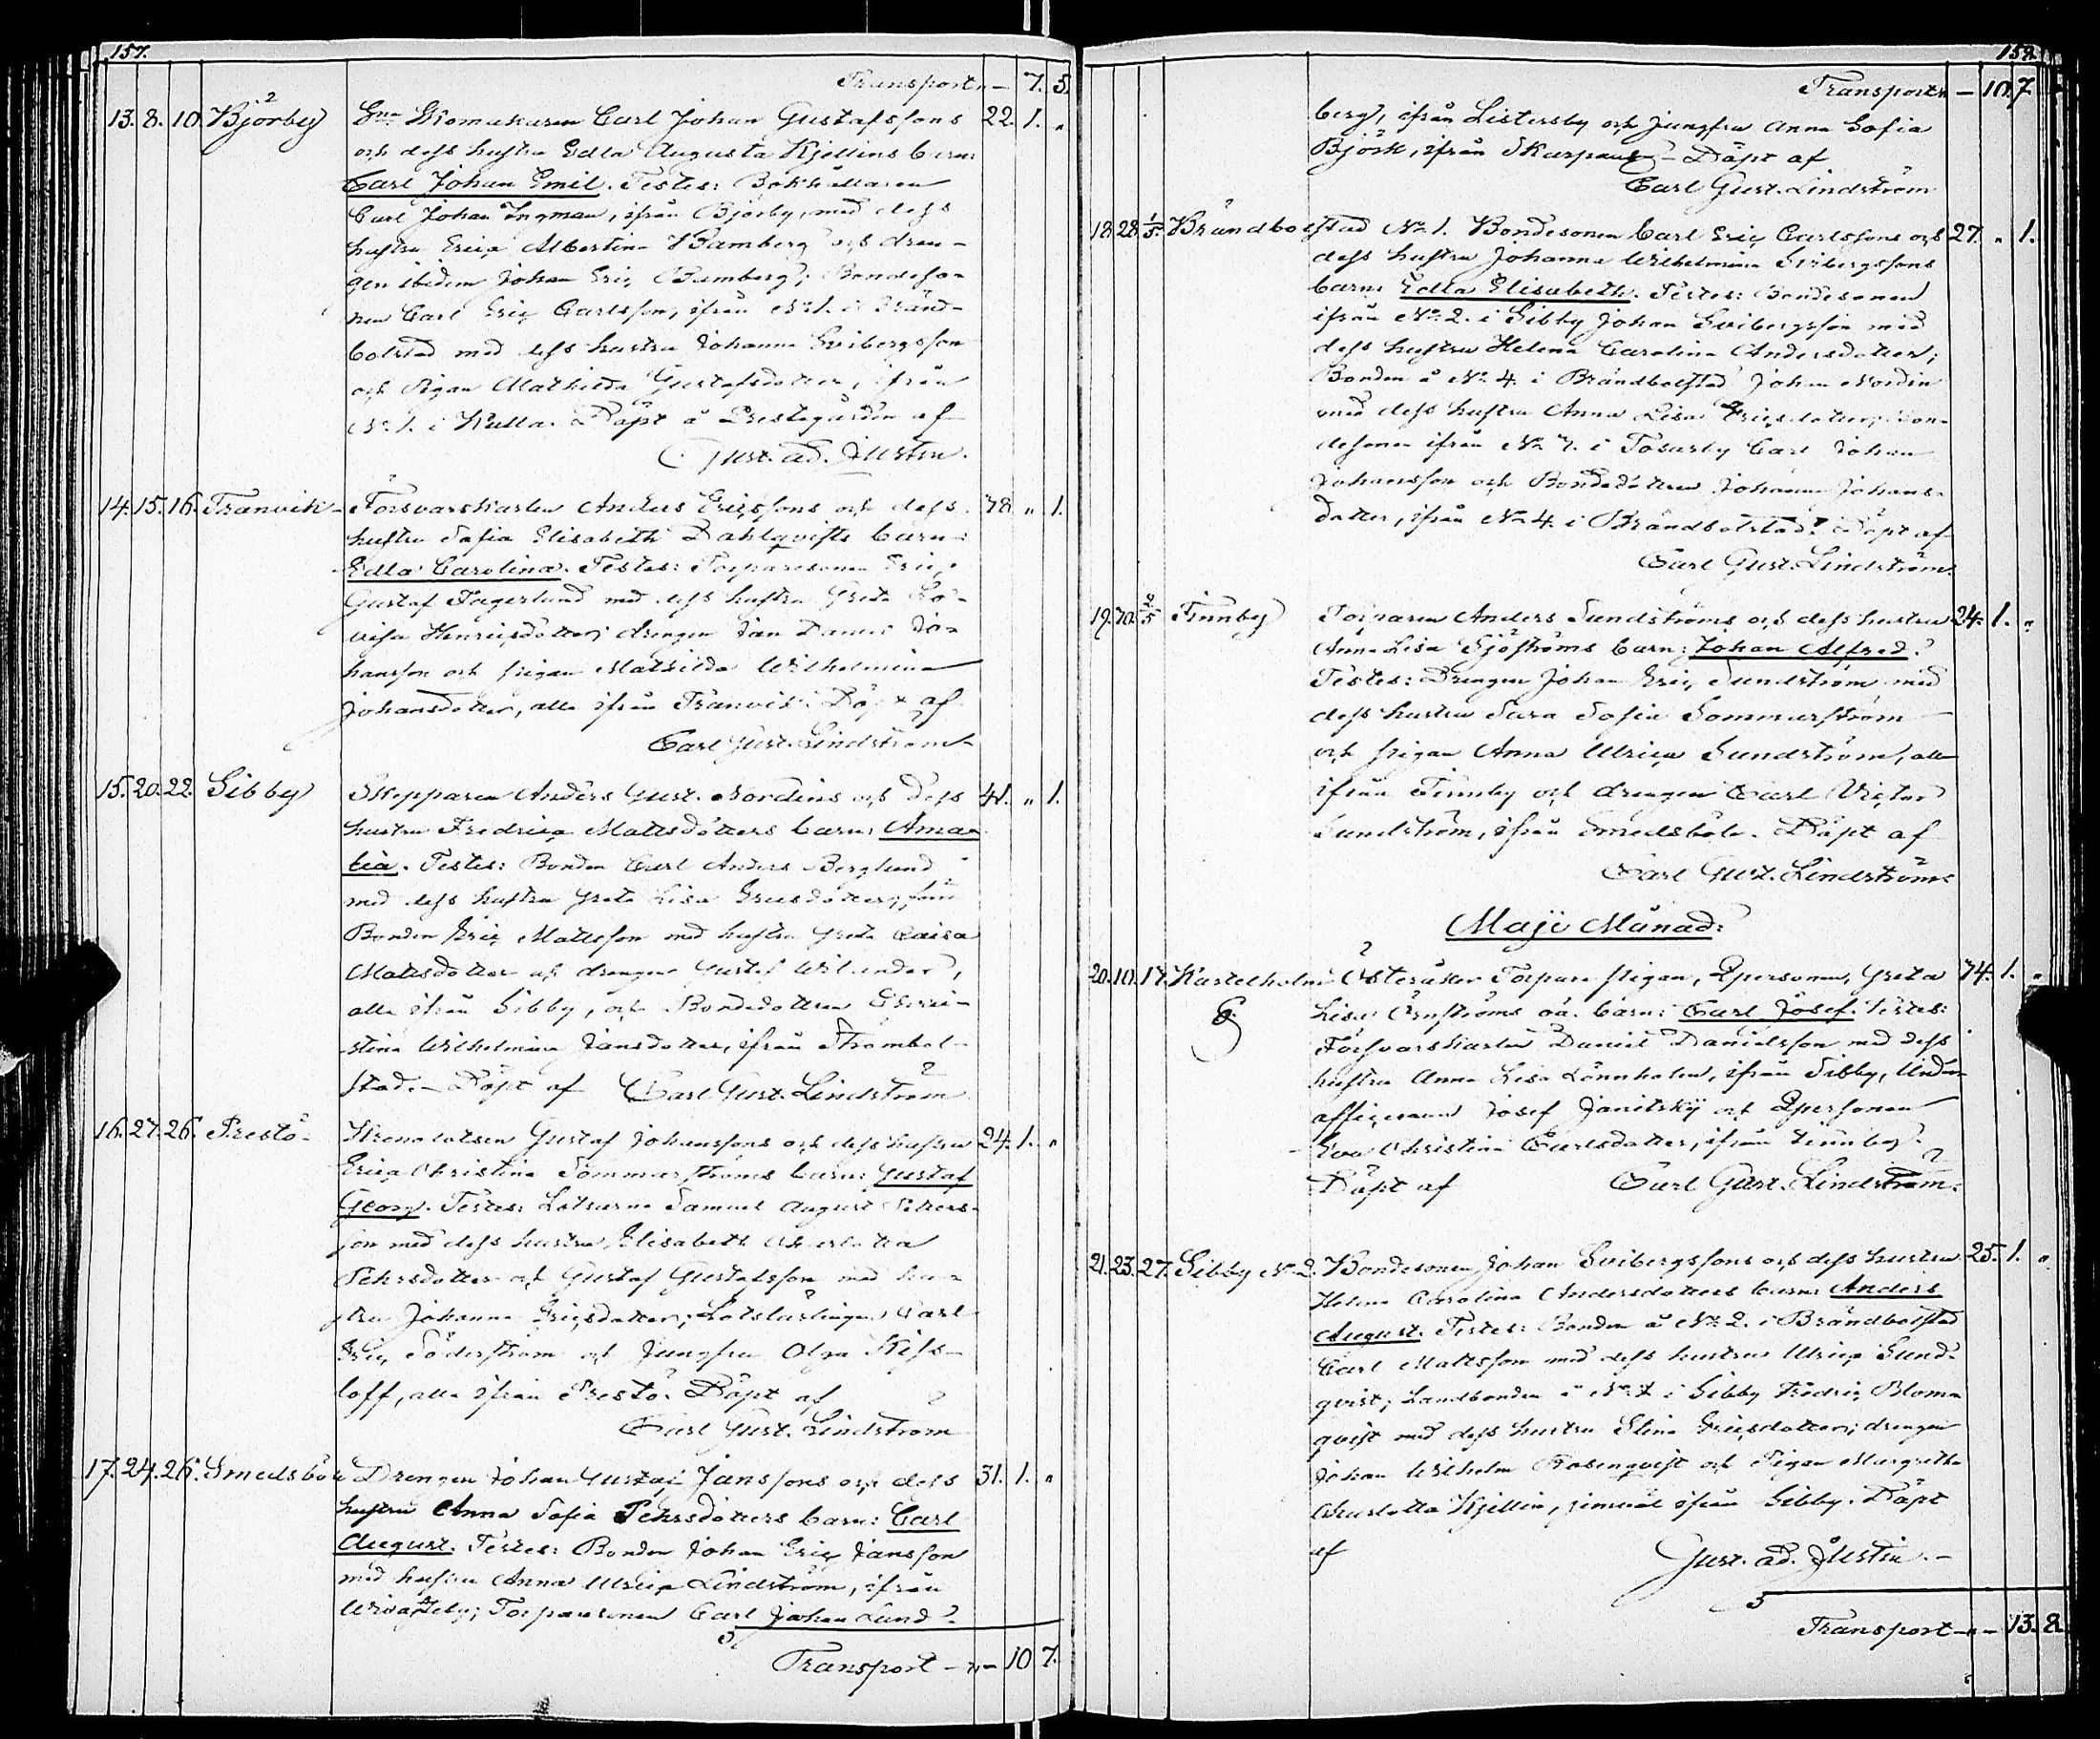 157.
Transport - 7. 5.
13. 8. 10. Björby Gne Skomakaren Carl Johan Gustafssons 22. 1. "
och dess hustru Edla Augusta Kjellins barn:
Carl Johan Emil. Testes: Bokhållaren
Carl Johan Ingman, ifrån Björby, med dess
hustru Erica Albertina Bamberg och dren-
gen ibidem Johan Eric Bamberg; Bondeso-
nen Carl Eric Carlsson, ifrån No 1. i Bränd-
bolstad med dess hustru Johanna Svibergsson
och Pigan Mathilda Gustafsdotter, ifrån
No 1. i Kulla. Döpt å Prestegården af
Gust. Ad. Justin.
14. 15. 16. Tranvik - Försvarskarlen Anders Ericssons och dess 78 " 1.
hustru Sofia Elisabeth Dahlqvists barn:
Edla Carolina. Testes: Torparesonen Eric
Gustaf Fagerlund med dess hustru Greta Lo-
visa Henricsdotter; drengen Jan Daniel Jo-
hansson och pigan Mathilda Wilhelmina
Johansdotter, alla ifrån Tranvik. Döpt af
Carl Gust. Lindström
15. 20. 22. Sibby Skepparen Anders Gust. Nordins och dess 41. " 1.
hustru Fredrica Mattsdotters barn: Ama-
lia. Testes: Bonden Carl Anders Berglund
med dess hustru Greta Lisa Ericsdotter;
Bonden Eric Mattsson med hustru Greta Caisa
Mattsdotter och drengen Gustaf Wilander,
alla ifrån Sibby, och Bondedottren Chri-
stina Wilhelmina Jansdotter, ifrån Strömbol-
stad. - Döpt af Carl Gust. Lindström
16. 27. 26. Prestö - Kronolotsen Gustaf Johanssons och dess hustru 24. 1. "
Erica Christina Sommarströms barn: Gustaf
Georg. Testes: Lotsarne Samuel August Petters-
son med dess hustru Elisabeth Charlotta
Pehrsdotter och Gustaf Gustafsson med hu-
stru Johanna Ericsdotter; Lotslärlingen Carl
Eric Söderström och Jungfru Olga Kiss-
loff, alla ifrån Prestö. Döpt af
Carl Gust. Lindström
17. 24. 26. Smedsböle Drengen Johan Gustaf Janssons och dess 31. 1. "
hustru Anna Sofia Pehrsdotters barn: Carl
August. Testes: Bonden Johan Eric Jansson
med hustru Anna Ulrica Lindström, ifrån
Torparesonen Carl Johan Lind-
Transport - " - 10 7.
158.
Transport - 10. 7.
berg, ifrån Listersby och Jungfru Anna Sofia
Björk, ifrån Skarpans - Döpt af
Carl Gust. Lindström
18. 28. 1/5. Brändbolstad No 1. Bondesonen Carl Eric Carlssons och 27. " 1.
dess hustru Johanna Wilhelmina Svibergssons
barn: Edla Elisabeth. Testes: Bondesonen
ifrån No 2. i Sibby Johan Svibergsson med
dess hustru Helena Carolina Andersdotter;
Bonden å No 4. i Brändbolstad Johan Nordin
med dess hustru Anna Lisa Ericsdotter; Bon-
desonen ifrån No 7. i Tosarby Carl Johan
Johansson och Bondedottren Johanna Johans-
dotter, ifrån No 4. i Brändbolstad. Döpt af
Carl Gust. Lindström.
19. 30. 2/5 Finnby Torparen Anders Sundströms och dess hustru 24. 1. "
Anna Lisa Sjöströms barn: Johan Alfred.
Testes: Drengen Johan Eric Sundström med
dess hustru Sara Sofia Sommarström
och pigan Anna Ulrica Sundström, alla
ifrån Finnby och drengen Carl Victor
Sundström, ifrån Smedsböle. Döpt af
Carl Gust. Lindström
Maji Månad:
20. 10. 17. Kastelholm Österåker Torpare pigan, Qpersonen, Greta 74. 1. "
Lisa Örnströms oä. barn: Carl Josef. Testes:
Försvarskarlen Daniel Danielsson med dess
hustru Anna Lisa Lönnholm, ifrån Sibby, Under
officeraren Josef Janitskij och Qpersonen
Eva Christina Carlsdotter, ifrån Finnby.
Döpt af Carl Gust. Lindström.
21. 23. 27. Sibby No 2. Bondesonen Johan Svibergssons och dess hustru 25. 1. "
Helena Carolina Andersdotters barn: Anders
August. Testes: Bonden å No 2. i Brändbolstad
Carl Mattsson med dess hustru Ulrica Sund-
qvist; Landbonden å No 1 i Sibby Fredric Blom-
qvist med dess hustru Stina Ericsdotter; drengen
Johan Wilhelm Rosenqvist och Pigan Margretha
Charlotta Kjellin, jemväl ifrån Sibby. Döpt
af Gust. Ad. Justin. -
Transport - " - 13. 8.